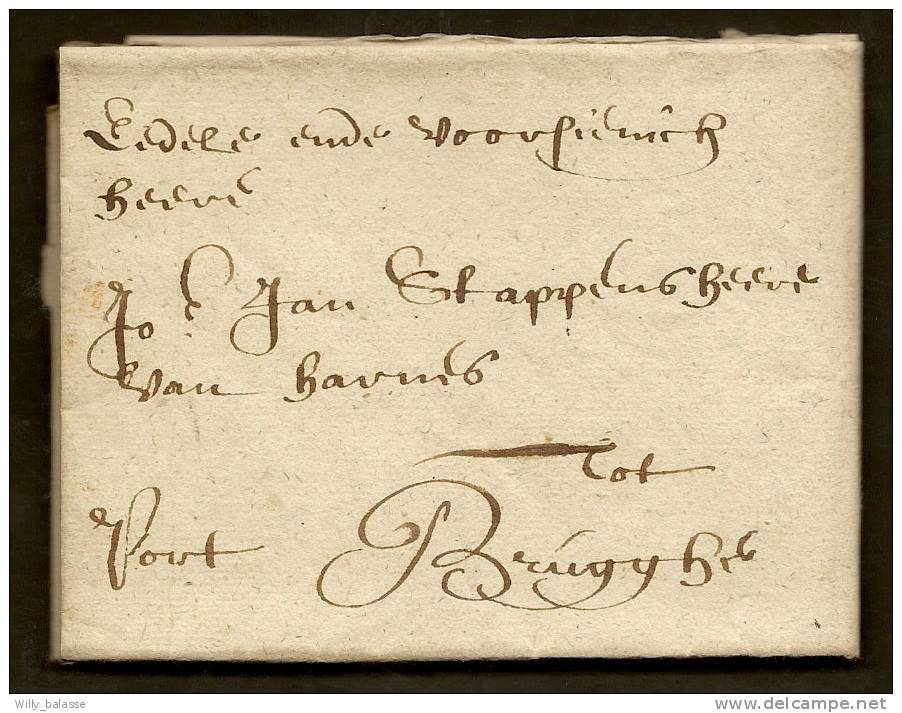 Eedele ende voorsienich
heere
Jor Jan Stappens heere
van harnes
tot
Port Brugghe
Willy_balasse
delcampe.net